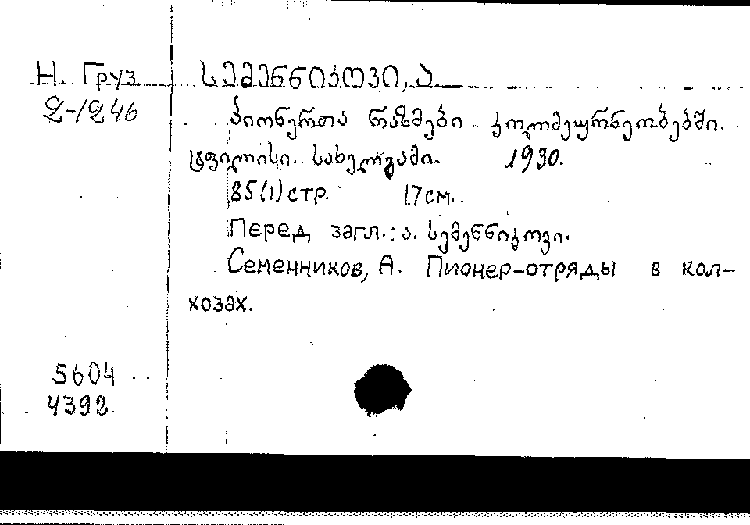 Н. Груз
2-1246
სემენნიკოვი, ა.
პიონერთა რაზმები კოლმეურნეობებში.
ტფილისი. სახელგამი. 1930.
85(1)стр. 17см.
Перед загл.: ა. სემენნიკოვი.
Семенников, А. Пионер-отряды в кол-
хозах.
5604
4392